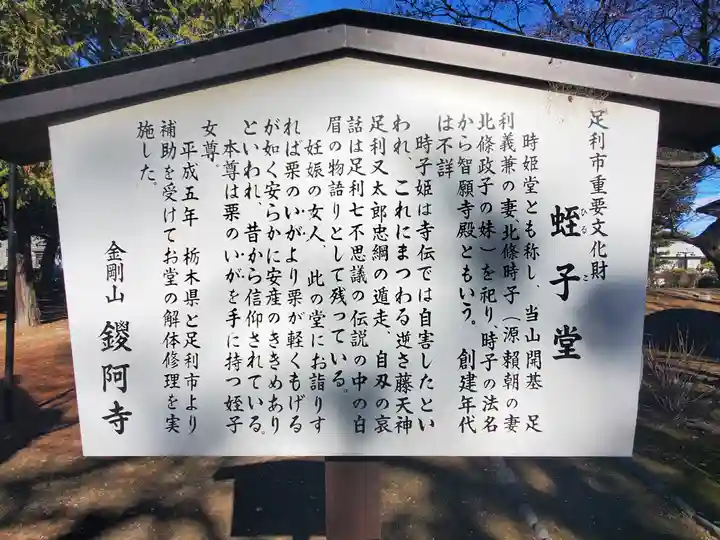 足利市重要文化財
蛭子堂
ひるこ
時姫堂とも称し、当山開基 足
利義兼の妻、北條時子（源頼朝の妻
北條政子の妹）を祀り、時子の法名
から智願寺殿ともいう。 創建年代
は不詳
時子姫は寺伝では自害したとい
われ、これにまつわる逆さ藤天神
足利又太郎忠綱の遁走、自刄の哀
話は足利七不思議の伝説の中の白
眉の物語りとして残っている。
妊娠の女人、此の堂にお詣りす
れば栗のいがより栗が軽くもげる
が如く安らかに安産のききめあり
といわれ、昔から信仰されている。
本尊は栗のいがを手に持つ姪子
女尊。
平成五年 栃木県と足利市より
補助を受けてお堂の解体修理を実
施した。
金剛山 鑁阿寺